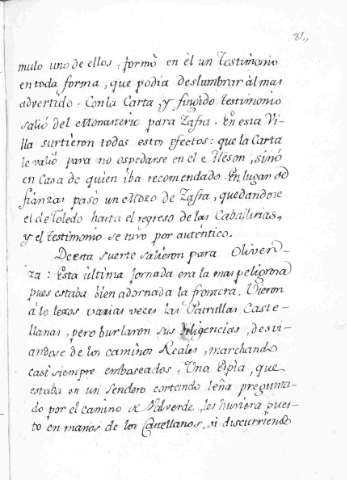 81,,
mulo uno de ellos, formò en èl un testimonio
en toda forma, que podia deslumbrar àl mas
advertido. Con la Carta, y fingido testimonio
saliò del Monasterio para Zafra. En esta Vi-
lla surtieron todos estos efectos: que la Carta
le valiò para no ospedarse en el Meson, sinò
en Casa de quien iba recomendado. En lugar de
fianzas pasò un Mozo de Zafra, quedandose
el de Toledo hasta el regreso de las Caballerias,
y el testimonio se tuvo por autèntico.
De esta suerte salieron para Oliven-
za: Esta ùltima jornada era la mas peligrosa
pues estaba bien adornada la frontera. Vieron
à lo lexos varias veces las Patrullas Caste-
llanas, pero burlaron sus diligencias, desvi-
andose de los caminos Reales, marchando
casi siempre emboscados. Una Espia, que
estaba en un sendero cortando leña pregunta-
do por el camino de Valverde, les huviera pues-
to en manos de los Castellanos, si discurriendo